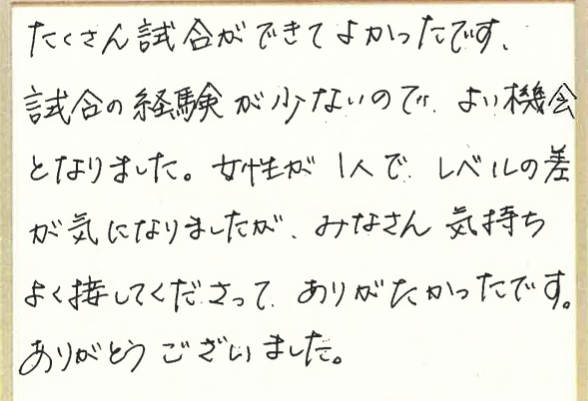 たくさん試合ができてよかったです、
試合の経験が少ないので、よい機会
となりました。女性が1人で、レベルの差
が気になりましたが、みなさん気持ち
よく接してくださって、ありがたかったです。
ありがとうございました。